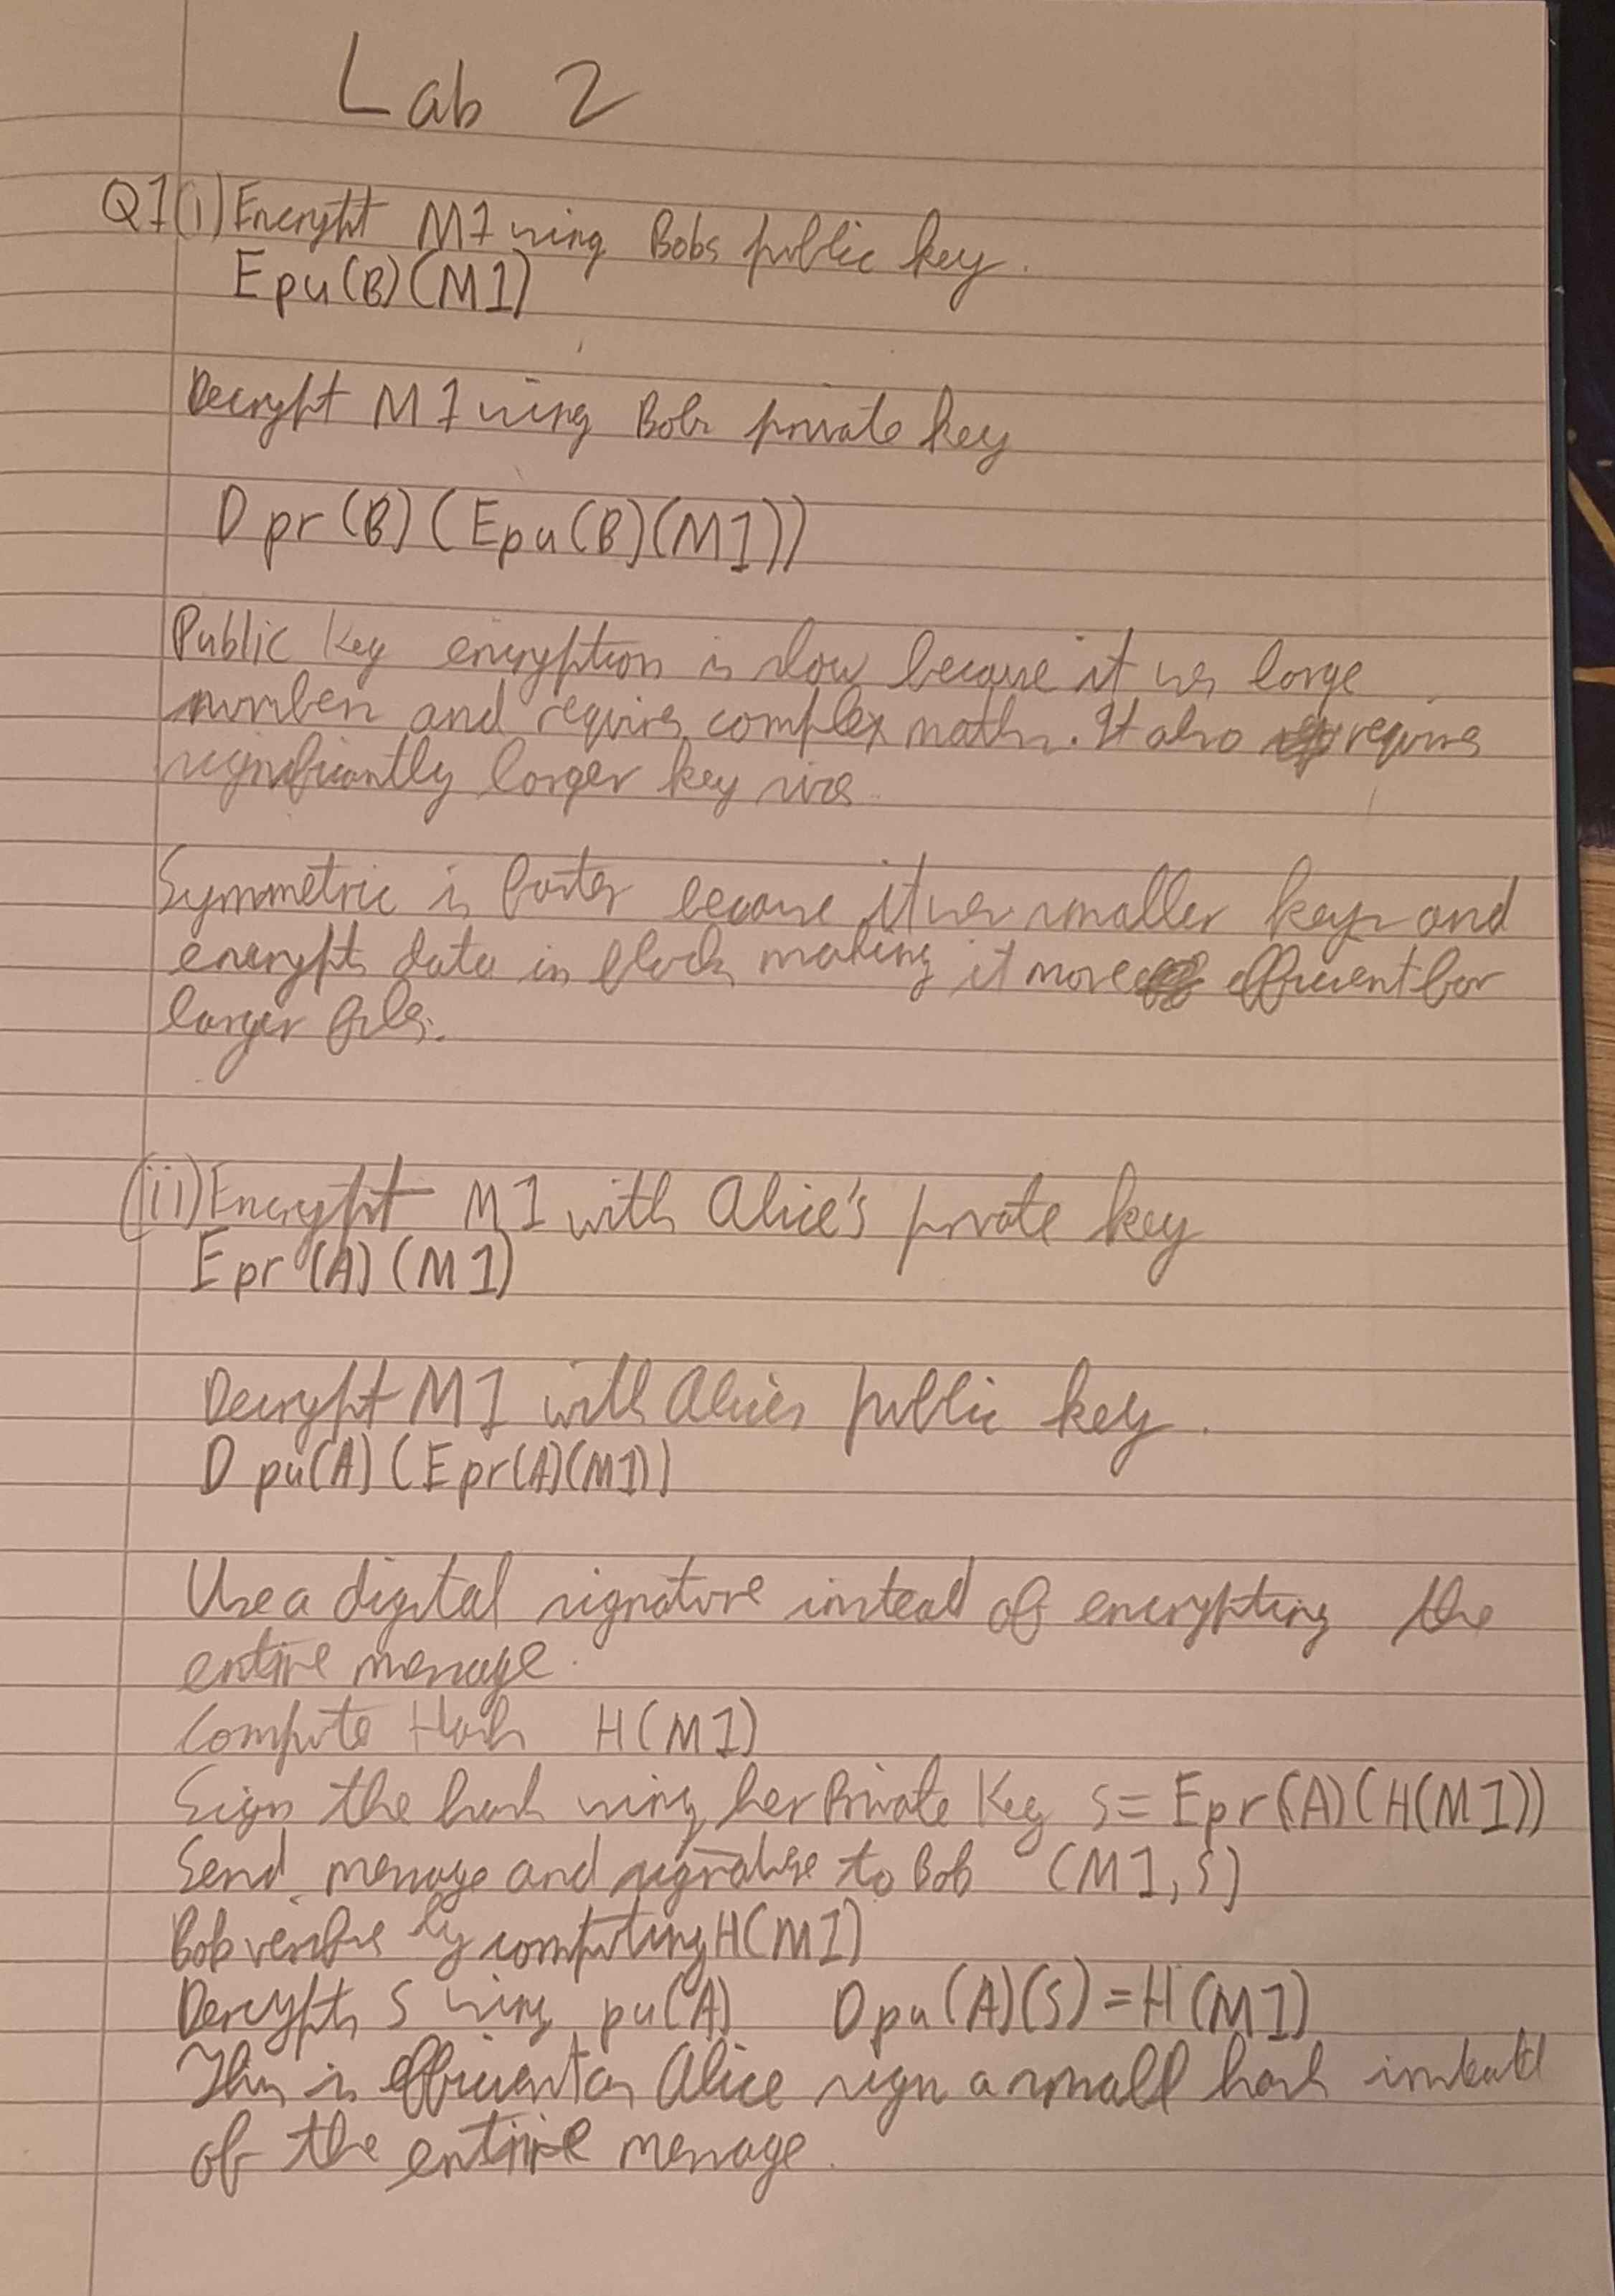 Lab 2
Q1(i) Encrypt M1 using Bobs public key.
Epu(B)(M1)
Decrypt M1 using Bobs private key
Dpr(B)(Epu(B)(M1))
Public Key encryption is slow because it uses large
numbers and requires complex maths. It also requires
significantly larger key sizes.
Symmetric is faster because it uses smaller keys and
encrypts data in blocks making it more efficient for
larger files.
(ii) Encrypt M1 with Alice's private key
Epr(A)(M1)
Decrypt M1 with Alices public key.
Dpu(A)(Epr(A)(M1))
Use a digital signature instead of encrypting the
entire message.
Compute Hash H(M1)
Sign the hash using her Private Key S=Epr(A)(H(M1))
Send message and signature to Bob (M1,S)
Bob verifies by computing H(M1)
Decrypts S using pu(A) Dpu(A)(S)=H(M1)
This is efficient as Alice sign a small hash instead
of the entire message.